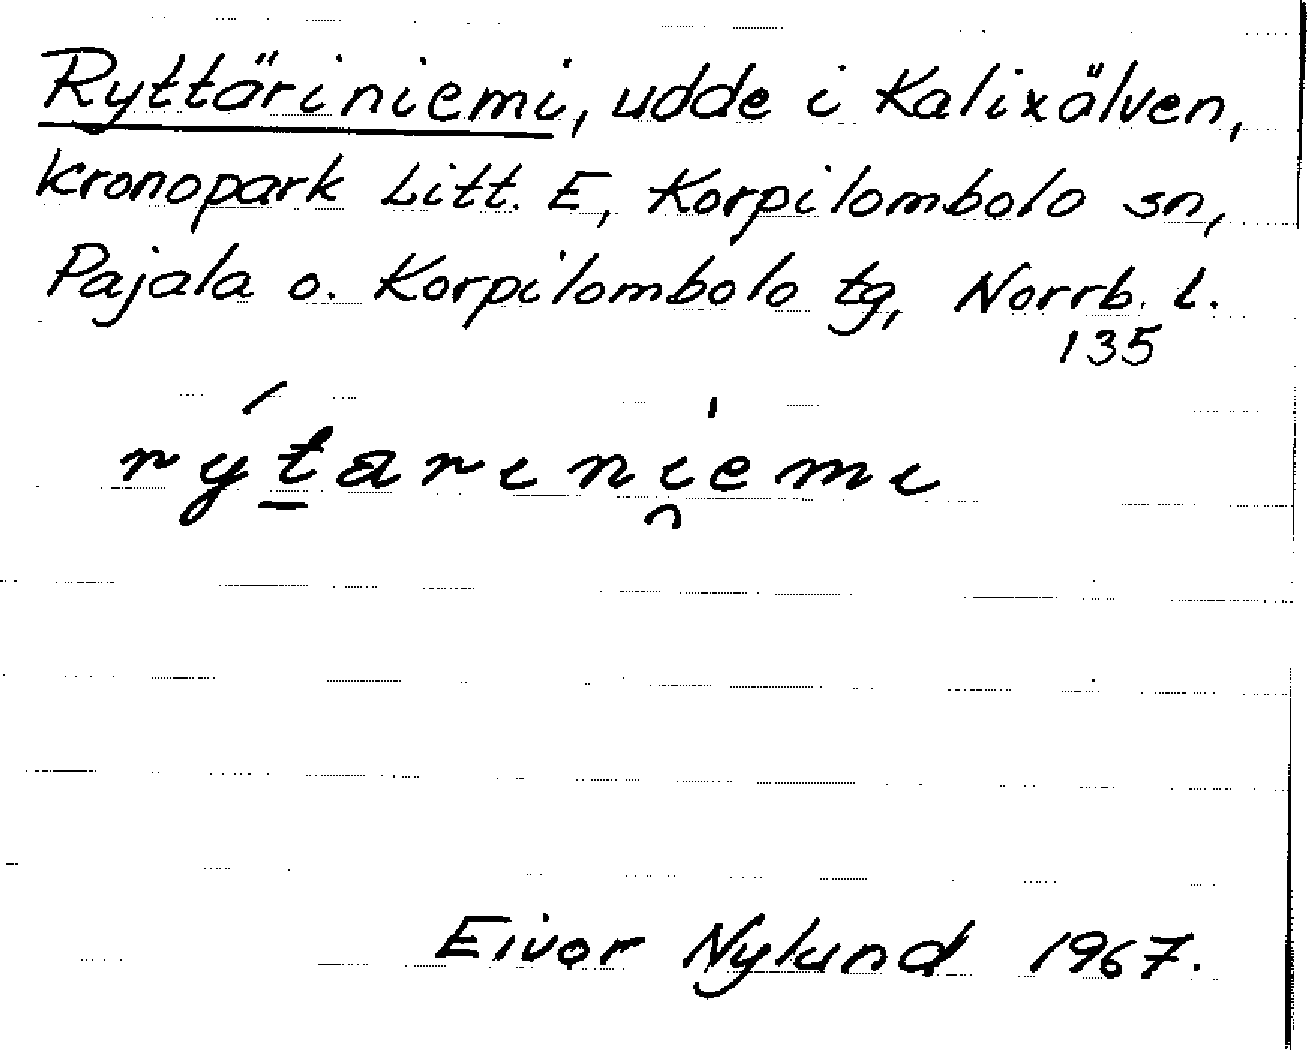 Ryttäriniemi, udde i Kalixälven,
kronopark Litt. E, Korpilombolo sn,
Pajala o. Korpilombolo tg, Norrb. l.
135
rý́t̲arını̯emı
Eivor Nylund 1967.